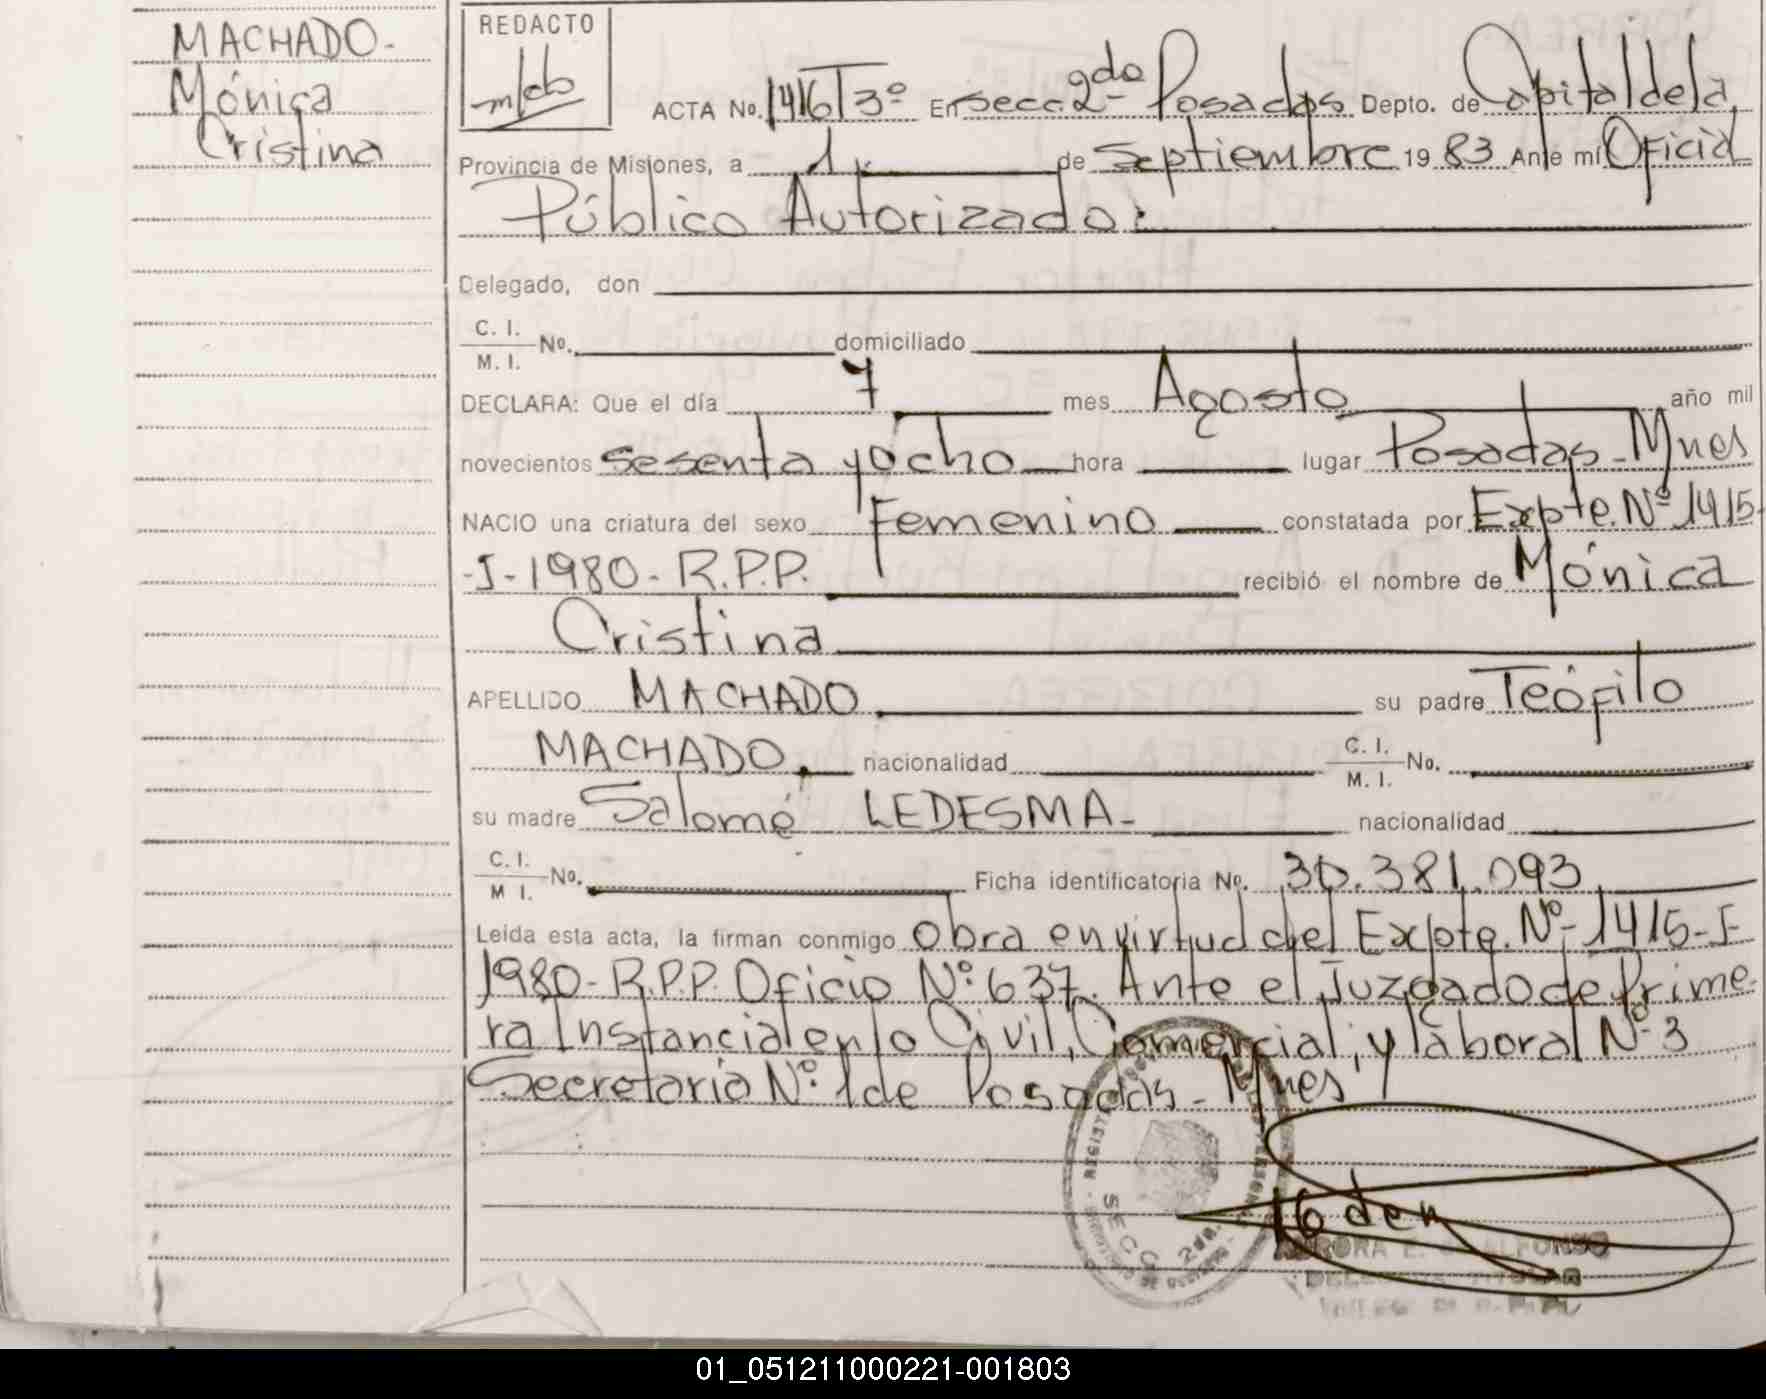 MACHADO-
Mónica
Cristina
REDACTO
ACTA No. 1416 Tº3º En secc. 2da Posadas Depto. de Capital de la
Provincia de Misiones, a 1 de Septiembre 1983 Ante mí Oficial
Público Autorizado:
Delegado, don
C. I.
M. I. No. domiciliado
DECLARA: Que el día 7 mes Agosto año mil
novecientos sesenta y ocho hora lugar Posadas-Mnes
NACIO una criatura del sexo Femenino constatada por Expte. Nº 1415-
-I-1980-R.P.P. recibió el nombre de Mónica
Cristina
APELLIDO MACHADO su padre Teófilo
MACHADO. nacionalidad C. I. M. I. No.
su madre Salomé LEDESMA- nacionalidad
C. I. M I. No. Ficha identificatoria No. 30.381.093
Leída esta acta, la firman conmigo Obra en virtud del Expte. Nº-1415-I-
1980-R.P.P. Oficio Nº 637. Ante el Juzgado de Prime-
ra Instancia en lo Civil, Comercial, y laboral Nº 3
Secretaria Nº 1 de Posadas-Mnes
SECC. 2da.
01_051211000221-001803